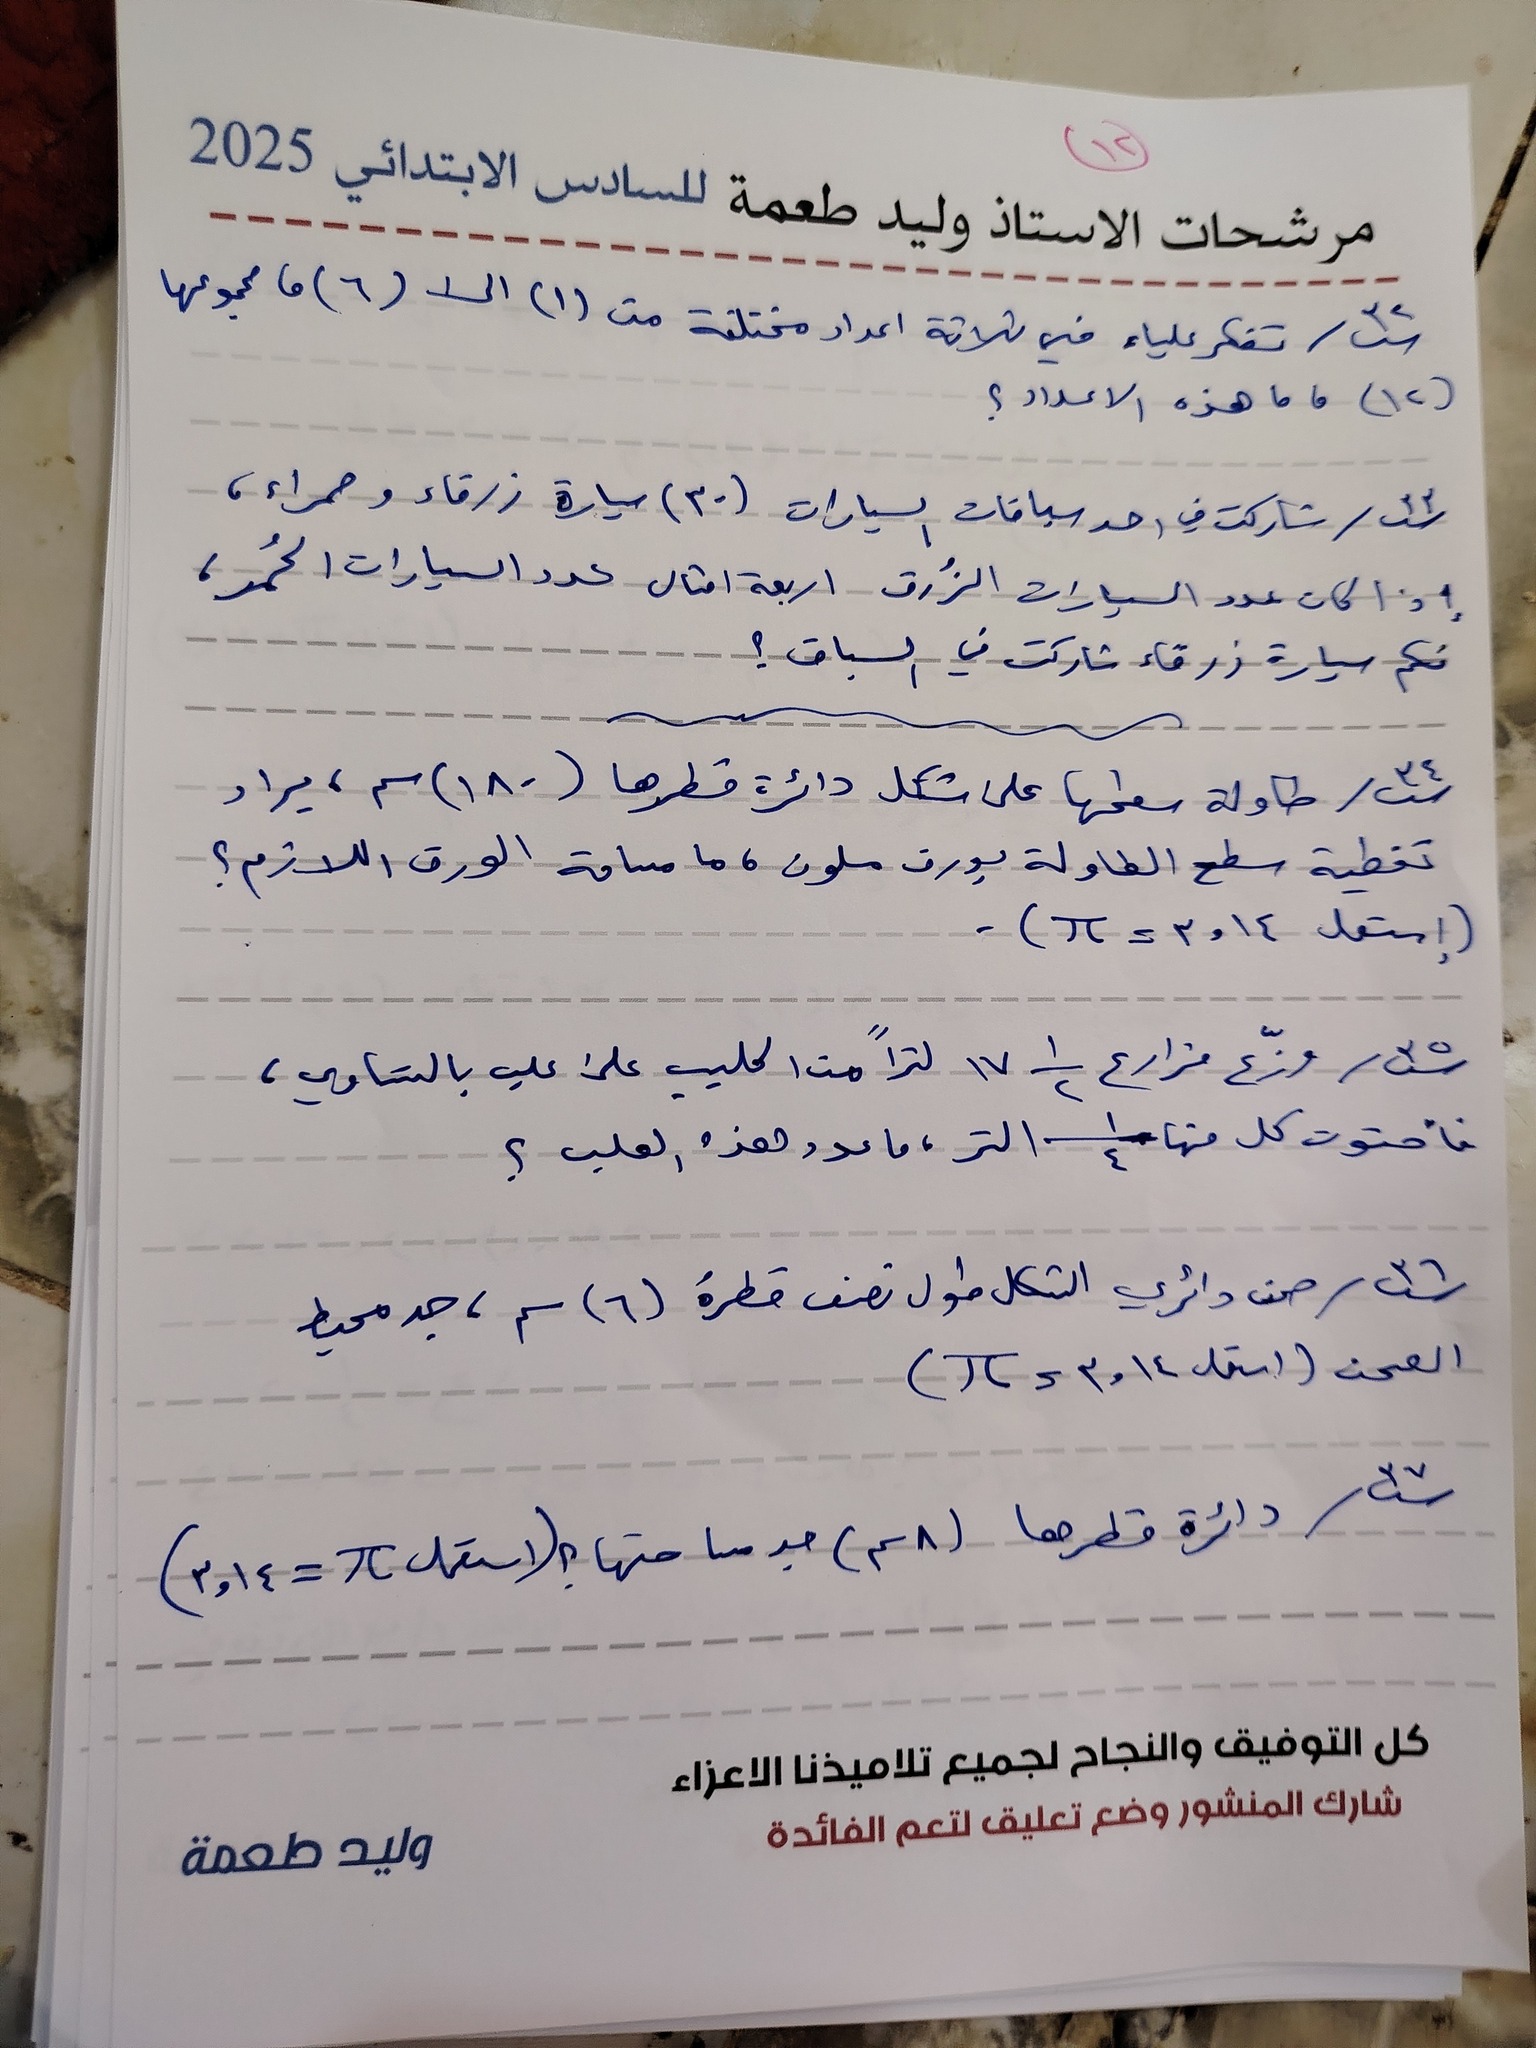 (١٢)
مرشحات الاستاذ وليد طعمة للسادس الابتدائي 2025
س٣٢/ تفكر علياء في ثلاثة اعداد مختلفة من (١) الى (٦) ، مجموعها
(١٢) ، ما هذه الاعداد ؟
س٣٣/ شاركت في احد سباقات السيارات (٣٠) سيارة زرقاء وحمراء ،
إذا كان عدد السيارات الزُرق اربعة امثال عدد السيارات الحُمر ،
فكم سيارة زرقاء شاركت في السباق ؟
س٣٤/ طاولة سطحها على شكل دائرة قطرها (١٨٠) سم ، يراد
تغطية سطح الطاولة بورق ملون ، ما مساحة الورق اللازم ؟
(إستعمل ٣,١٤ = π) .
س٣٥/ وزّع مزارع ١٧ ١/٢ لتراً من الحليب على علب بالتساوي ،
فأحتوت كل منها ١/٤ التر ، ما عدد هذه العلب ؟
س٣٦/ صحن دائري الشكل طول نصف قطرهُ (٦) سم ، جد محيط
الصحن (استعمل ٣,١٤ = π)
س٣٧/ دائرة قطرها (٨ سم) جد مساحتها ؟ (استعمل π = ٣,١٤)
كل التوفيق والنجاح لجميع تلاميذنا الاعزاء
شارك المنشور وضع تعليق لتعم الفائدة
وليد طعمة